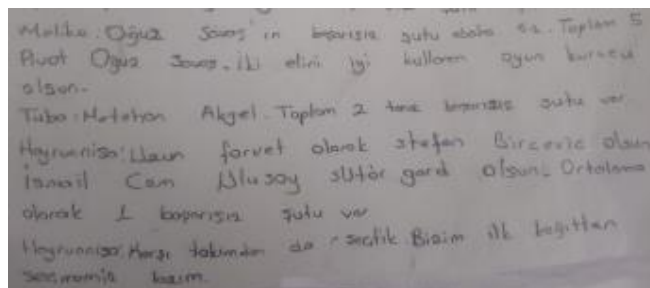 Melike: Oğuz Savaş'ın başarısız şutu daha az. Toplam 5
Pivot Oğuz Savaş. İki elini iyi kullanan oyun kurucu
olsun.
Tuba: Metehan Akyel. Toplam 2 tane başarısız şutu var.
Hayrunnisa: Uzun forvet olarak stefan Bircevic olsun
İsmail Cem Ulusoy şutör gard olsun. Ortalama
olarak 1 başarısız şutu var
Hayrunnisa: Karşı takımdan da seçtik. Bizim ilk başttan
seçmemiz lazım.